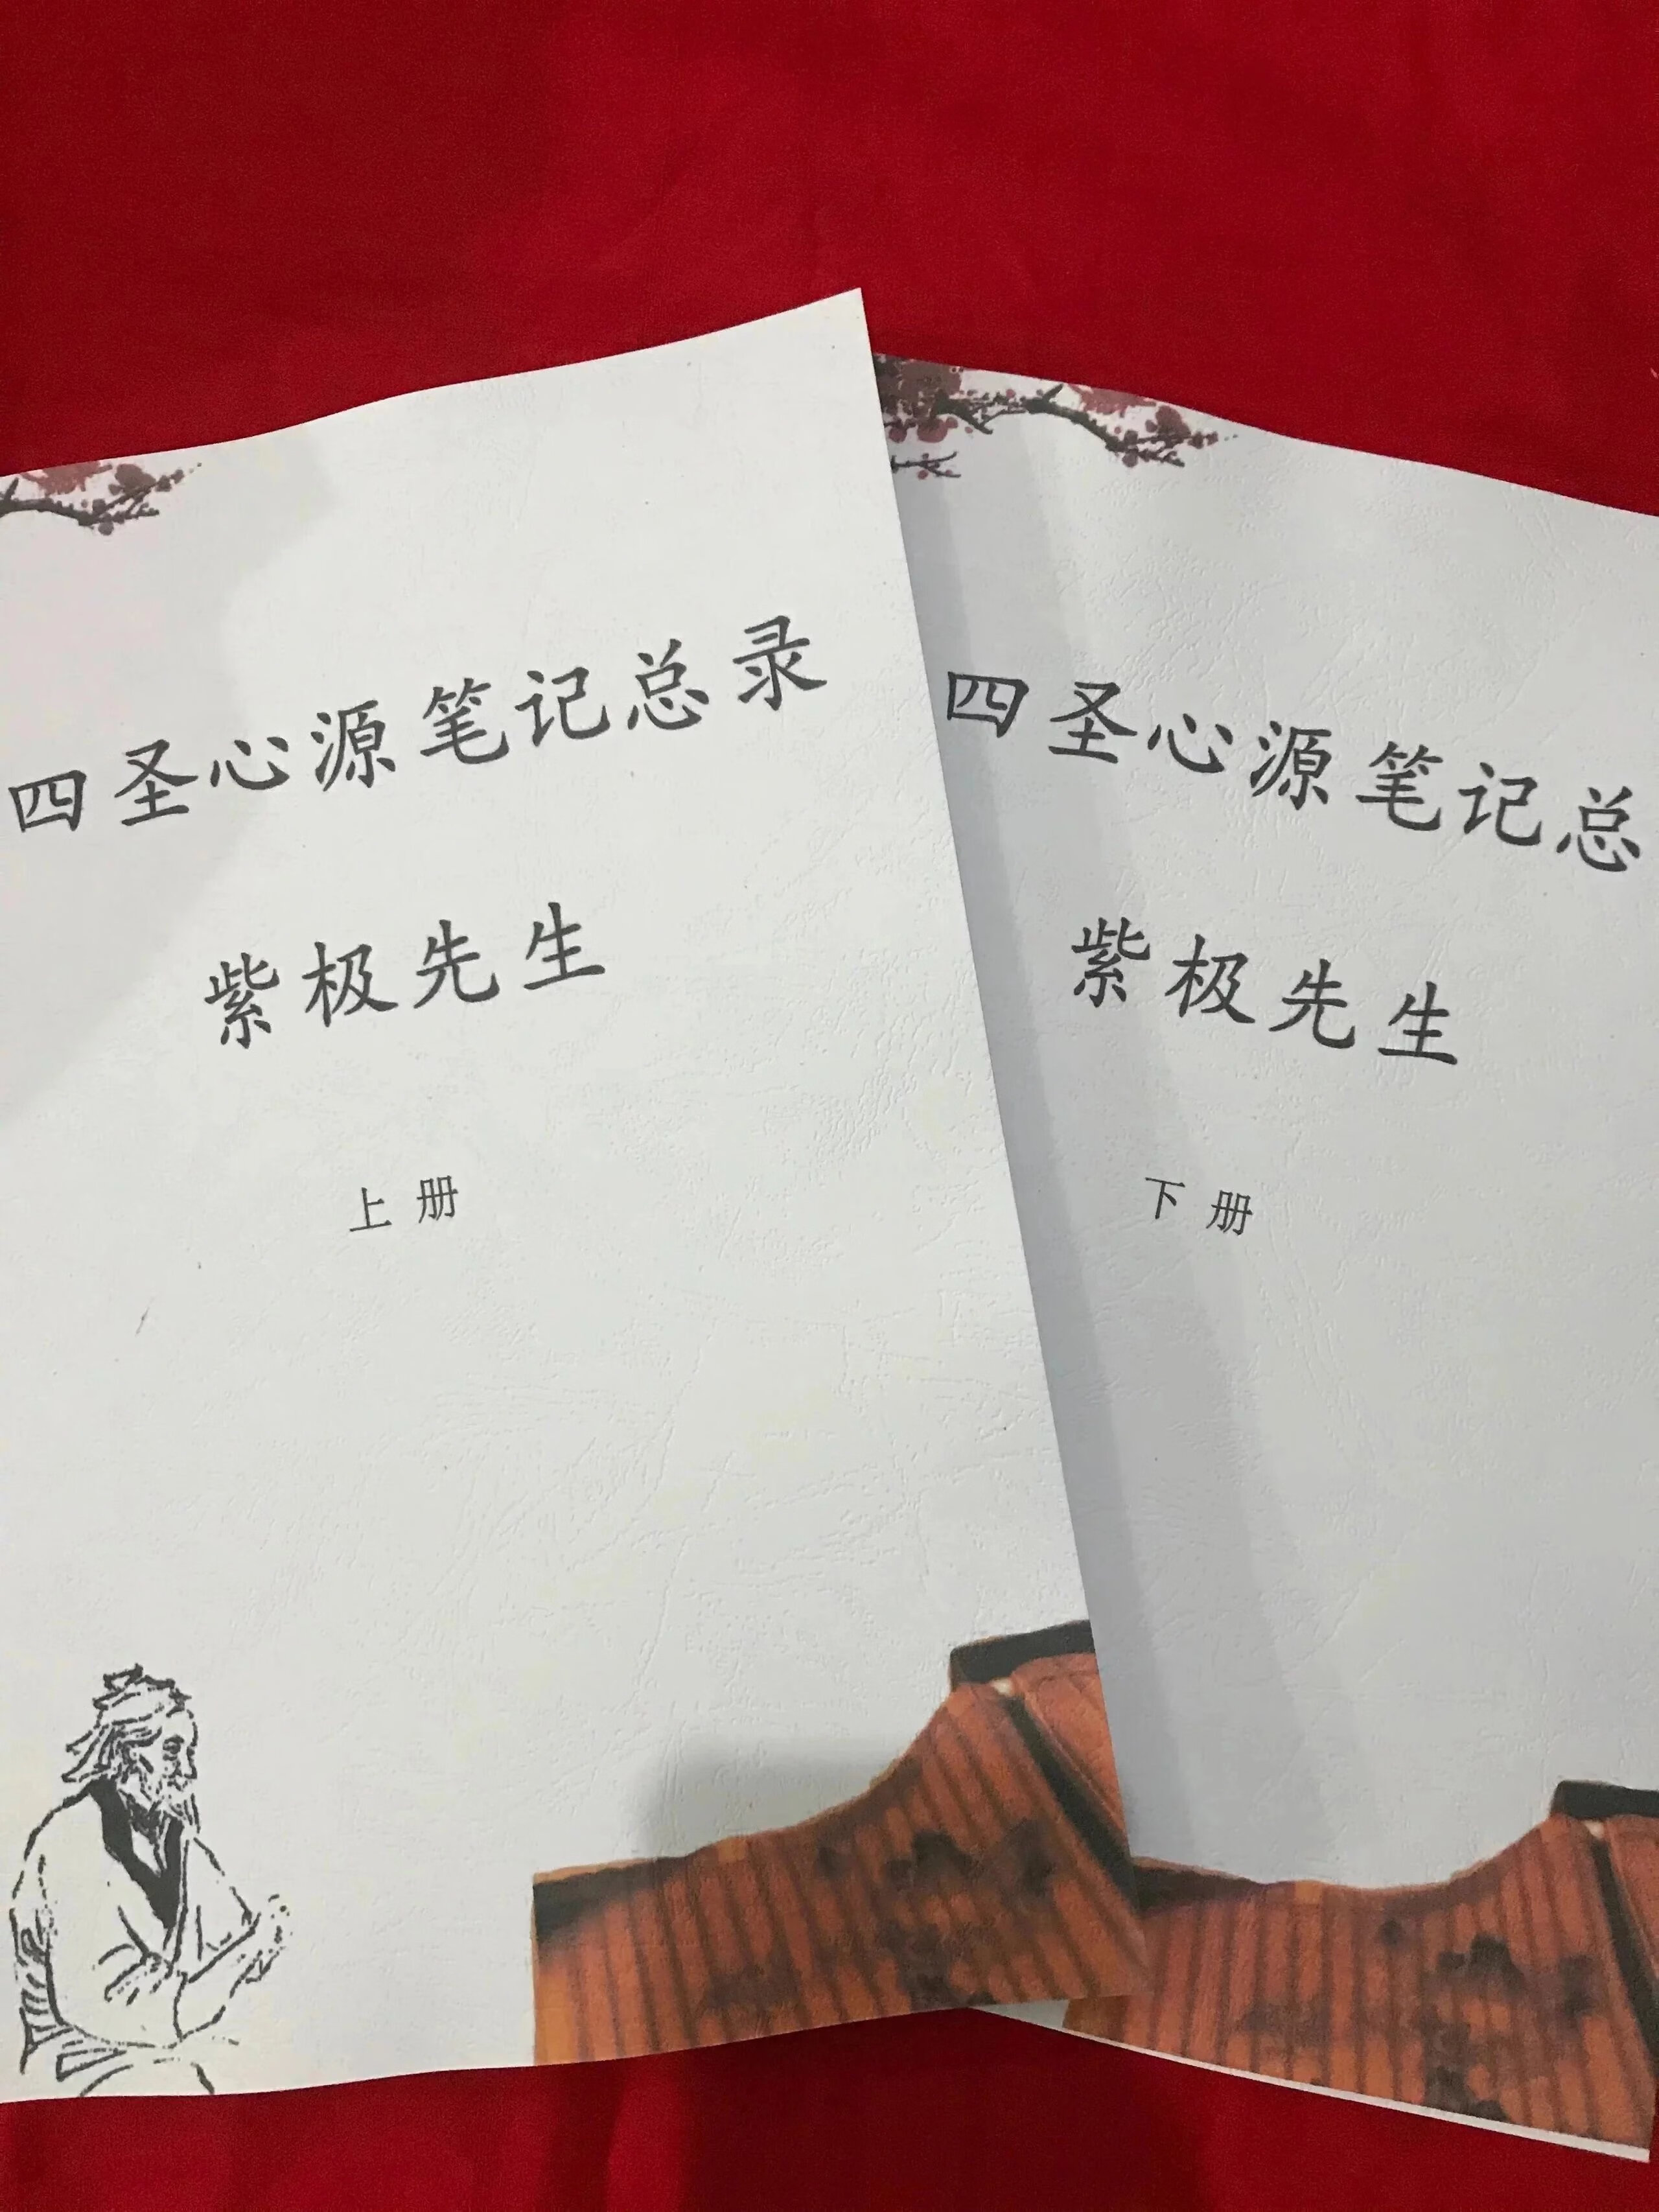 四圣心源笔记总录
紫极先生
上册
四圣心源笔记总
紫极先生
下册